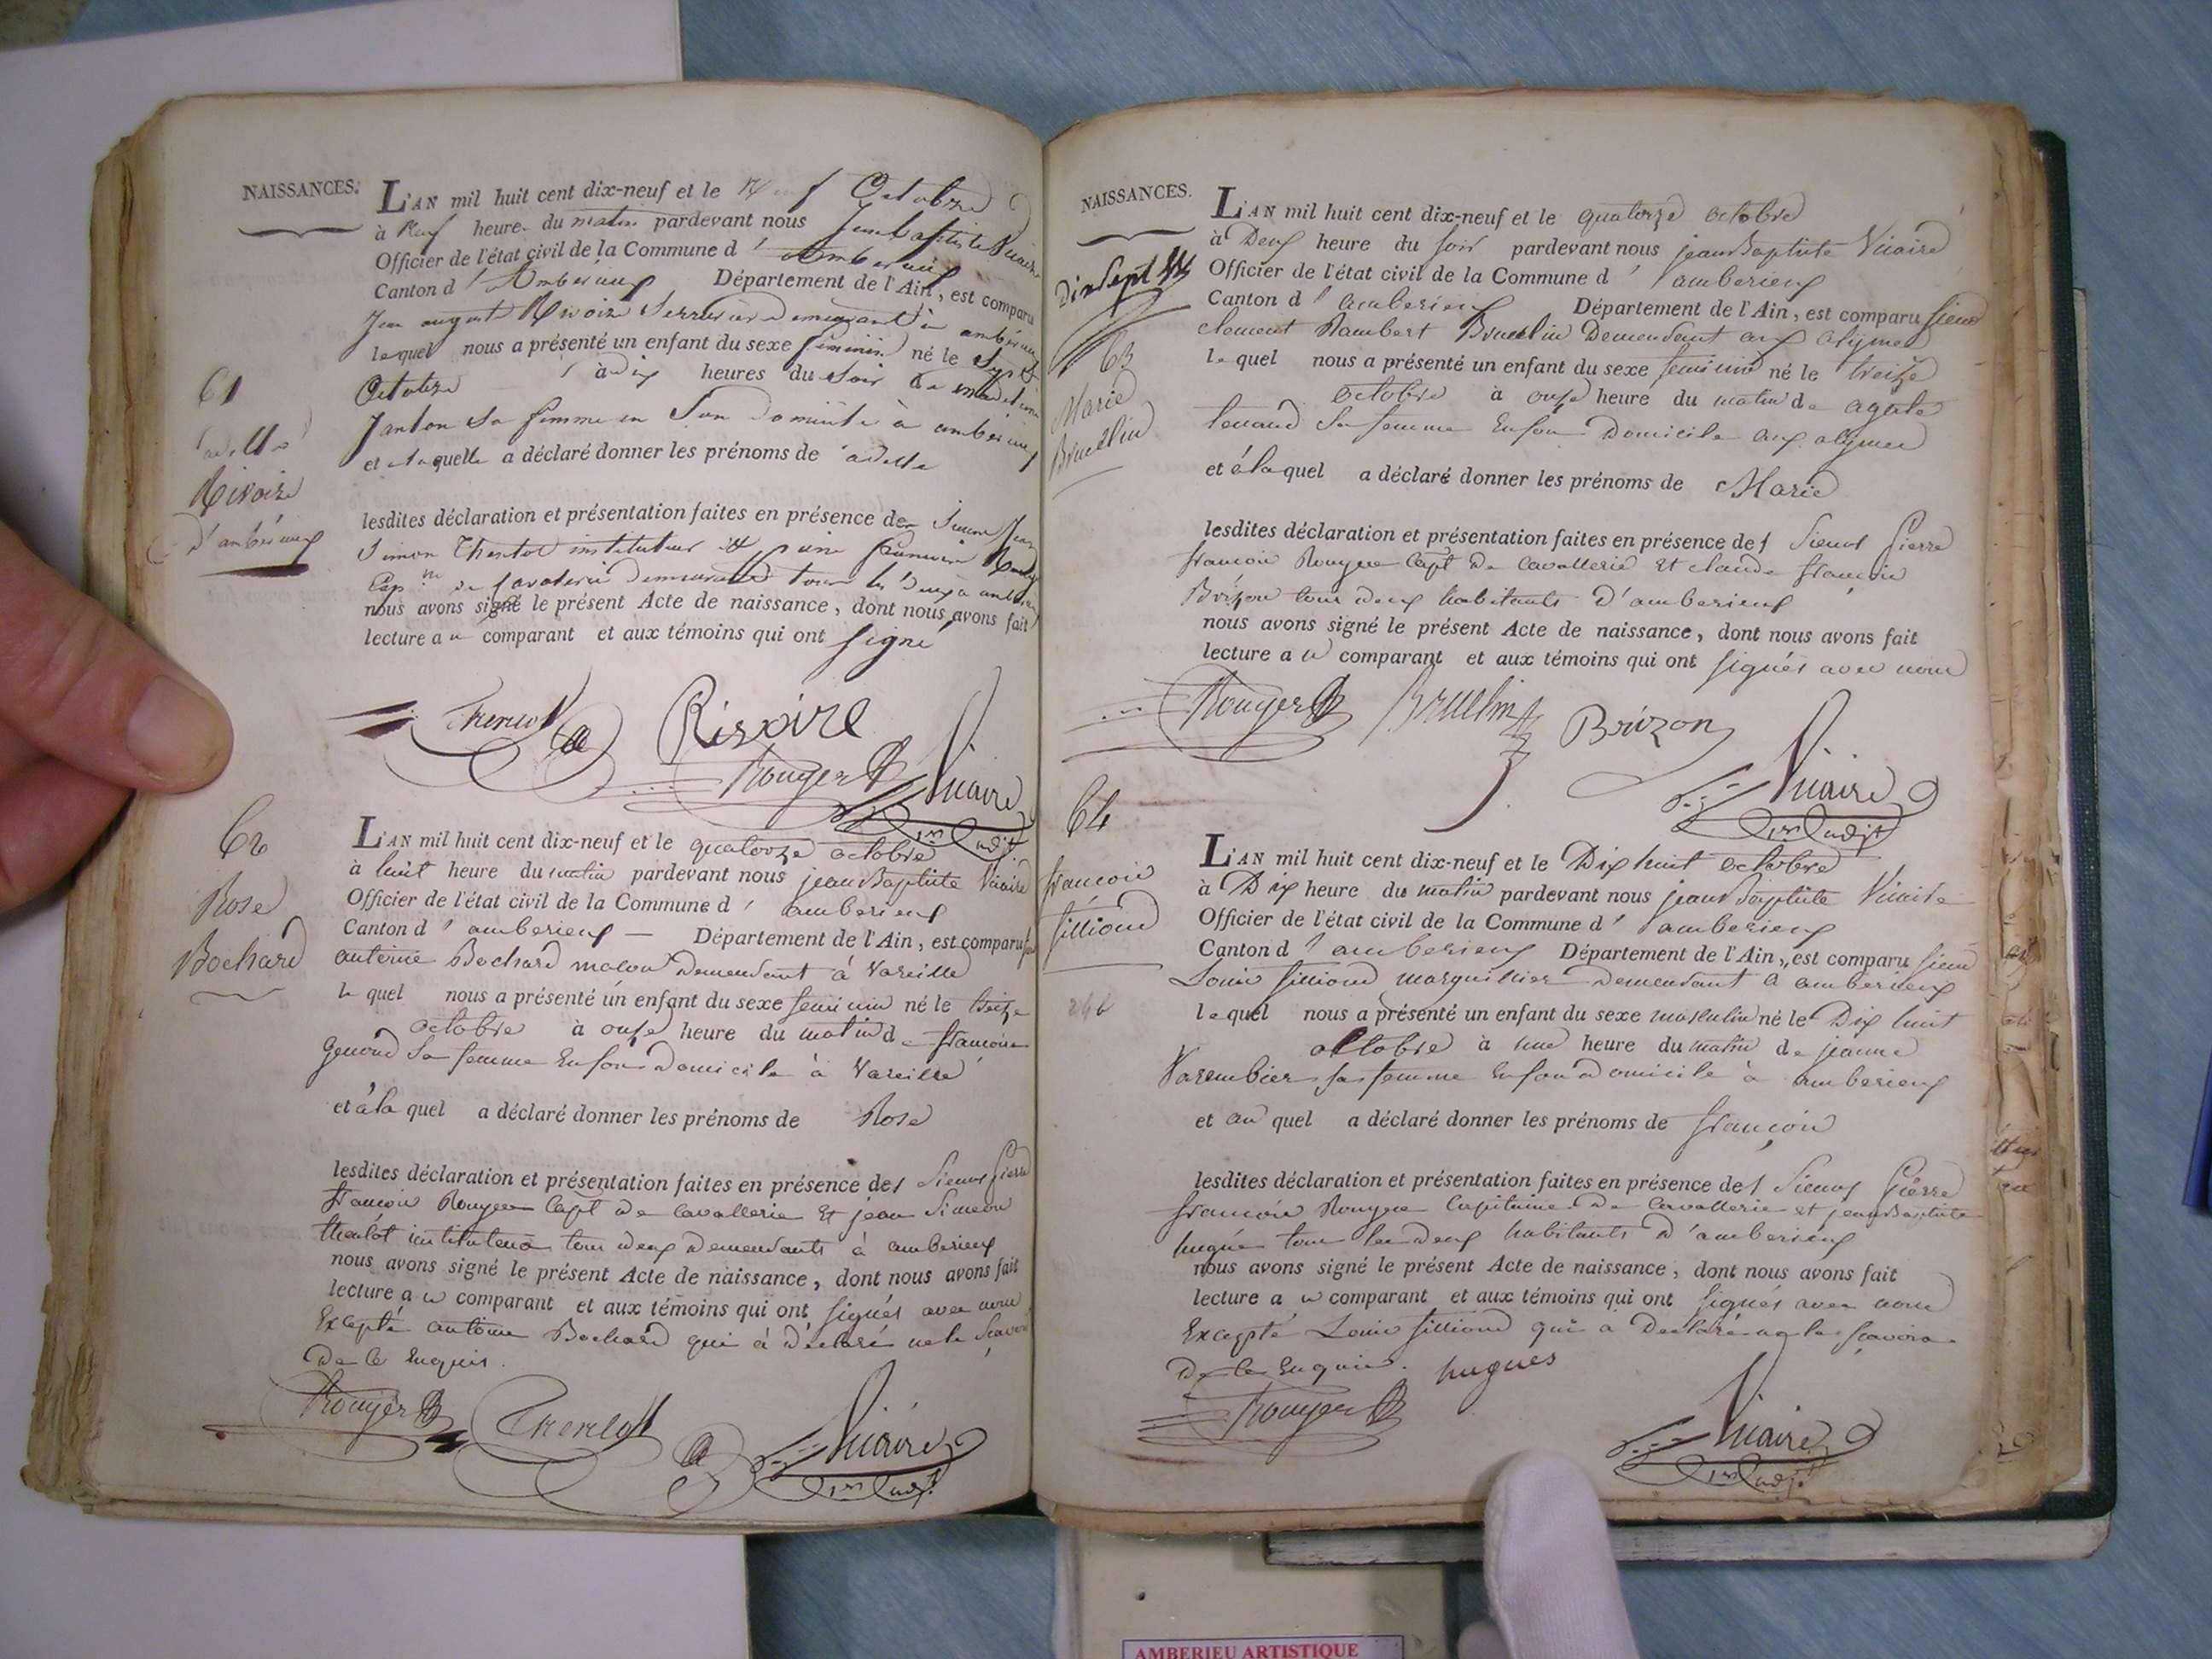 NAISSANCES.
L'AN mil huit cent dix-neuf et le Octobre
à Neuf heure du matin pardevant nous Jean baptiste Vicaire
Officier de l'état civil de la Commune d' Amberieux
Canton d' Amberieux Département de l'Ain, est comparu
Jean auguste Rivoire Serrurier demeurant à amberieux
lequel nous a présenté un enfant du sexe feminin né le Sept
Octobre à dix heures du Soir de
Janton Sa femme en Son Domicile à amberieux
et à laquelle a déclaré donner les prénoms de adelle
61
adelle
Rivoire
d'amberieux
lesdites déclaration et présentation faites en présence de
Simon Thenlot instituteur et pierre francois Rouyer
Cap.ne de Cavalerie demeurant tous les deux à amberieux
nous avons signé le présent Acte de naissance, dont nous avons fait
lecture au comparant et aux témoins qui ont signé
Thenlot Rivoire
Rouyer Vicaire
1er adjt
62
Rose
Bochard
L'AN mil huit cent dix-neuf et le quatorze octobre
à huit heure du matin pardevant nous jean Baptiste Vicaire
Officier de l'état civil de la Commune d' amberieux
Canton d' amberieux Département de l'Ain, est comparu
antoine Bochard macon Demeurant à Vareille
le quel nous a présenté un enfant du sexe feminin né le treize
octobre à onze heure du matin de francoise
Genoud Sa femme En son Domicile à Vareille
et à la quel a déclaré donner les prénoms de Rose
lesdites déclaration et présentation faites en présence des Sieurs Pierre
francois Rouyer Capt de Cavallerie Et jean Simeon
thenlot instituteur tous deux Demeurants à amberieux
nous avons signé le présent Acte de naissance, dont nous avons fait
lecture au comparant et aux témoins qui ont signés avec nous
Excepté antoine Bochard qui à déclaré ne le Scavoir
De ce Enquis.
Rouyer Thenlot Vicaire
1er adjt
NAISSANCES.
L'AN mil huit cent dix-neuf et le quatorze octobre
à Deux heure du soir pardevant nous jean Baptiste Vicaire
Officier de l'état civil de la Commune d' amberieux
Canton d' amberieux Département de l'Ain, est comparu sieur
clement Rambert Bruellin Demeurant aux alymes
le quel nous a présenté un enfant du sexe feminin né le treize
octobre à onze heure du matin de agate
tenand Sa femme En son Domicile aux alymes
et à la quel a déclaré donner les prénoms de Marie
Dix Sept
63
Marie
Bruellin
lesdites déclaration et présentation faites en présence des Sieurs Pierre
francois Rouyer Capt De Cavallerie Et claude francois
Brizon tous deux habitants D'amberieux
nous avons signé le présent Acte de naissance, dont nous avons fait
lecture au comparant et aux témoins qui ont signés avec nous
Rouyer Bruellin Brizon
Vicaire
1er adjt
64
francois
fillioud
246
L'AN mil huit cent dix-neuf et le Dix huit octobre
à Dix heure du matin pardevant nous jean Baptiste Vicaire
Officier de l'état civil de la Commune d' amberieux
Canton d' amberieux Département de l'Ain, est comparu sieur
Louis fillioud marguillier Demeurant à amberieux
le quel nous a présenté un enfant du sexe masculin né le Dix huit
octobre à une heure du matin de jeanne
Varembier sa femme En son Domicile à amberieux
et au quel a déclaré donner les prénoms de francois
lesdites déclaration et présentation faites en présence des Sieurs Pierre
francois Rouyer Capitaine De Cavallerie et jean Baptiste
hugue tous les deux habitants D'amberieux
nous avons signé le présent Acte de naissance, dont nous avons fait
lecture au comparant et aux témoins qui ont signés avec nous
Excepté Louis fillioud qui a Declaré ne le scavoir
De ce Enquis. hugues
Rouyer Vicaire
1er adjt
AMBERIEU ARTISTIQUE